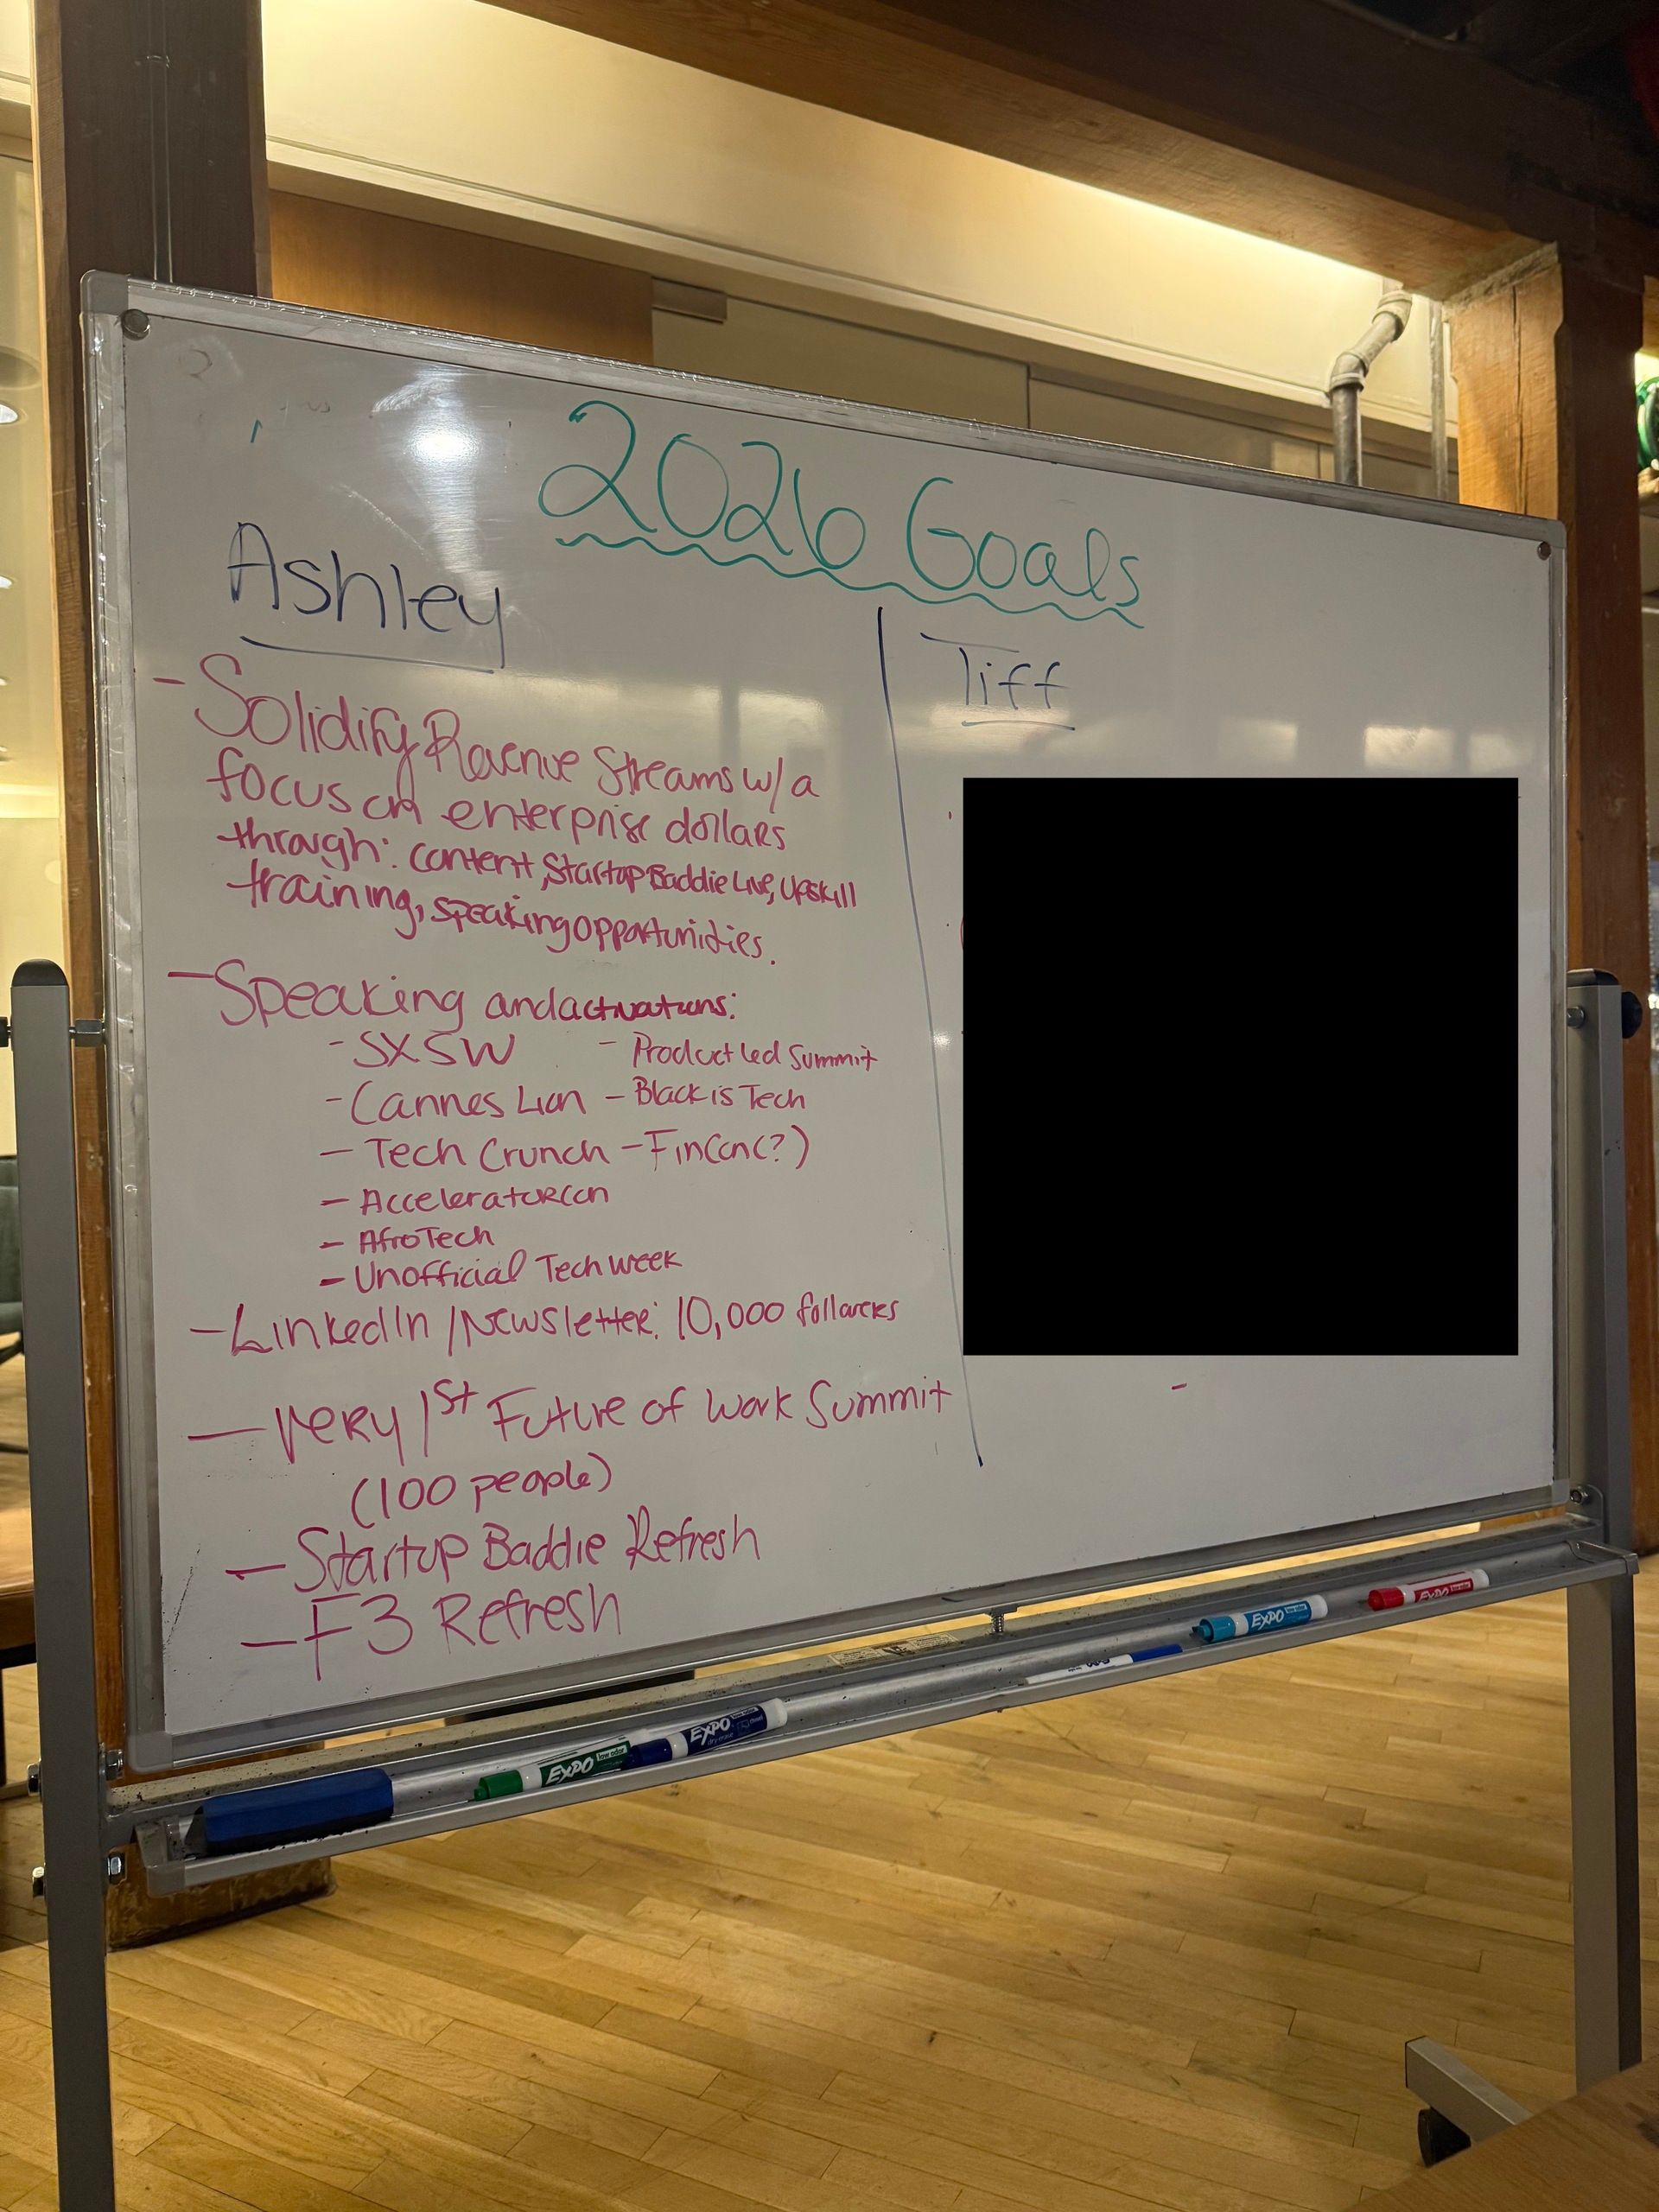 2026 Goals
Ashley
- Solidify Revenue Streams w/a
focus on enterprise dollars
through: content, Startup Baddie Live, Upskill
training, speaking opportunities.
- Speaking and activations:
- SXSW - Product Led Summit
- Cannes Lion - Black is Tech
- Tech Crunch - FinCon(?)
- AcceleratorCon
- AfroTech
- Unofficial Tech Week
- LinkedIn / Newsletter: 10,000 followers
- Very 1st Future of Work Summit
(100 people)
- Startup Baddie Refresh
- F3 Refresh
Tiff
-
EXPO low odor
EXPO low odor
EXPO
EXPO low odor
dry erase